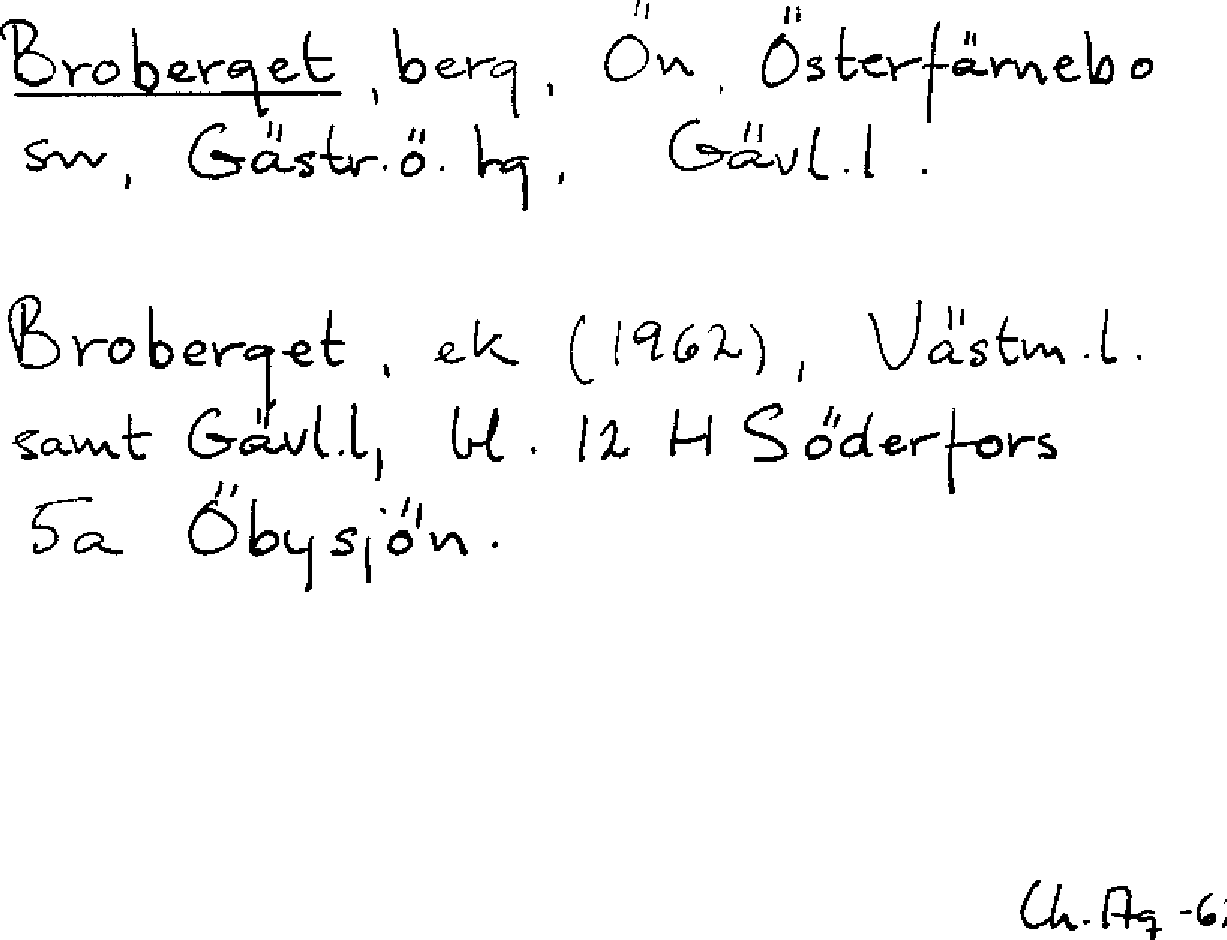 Broberget, berg, Ön, Österfärnebo
sn, Gästr.ö. hg, Gävl.l.
Broberget, ek (1962), Västm.l.
samt Gävl.l, bl. 12 H Söderfors
5a Öbysjön.
Ch. Ag -6